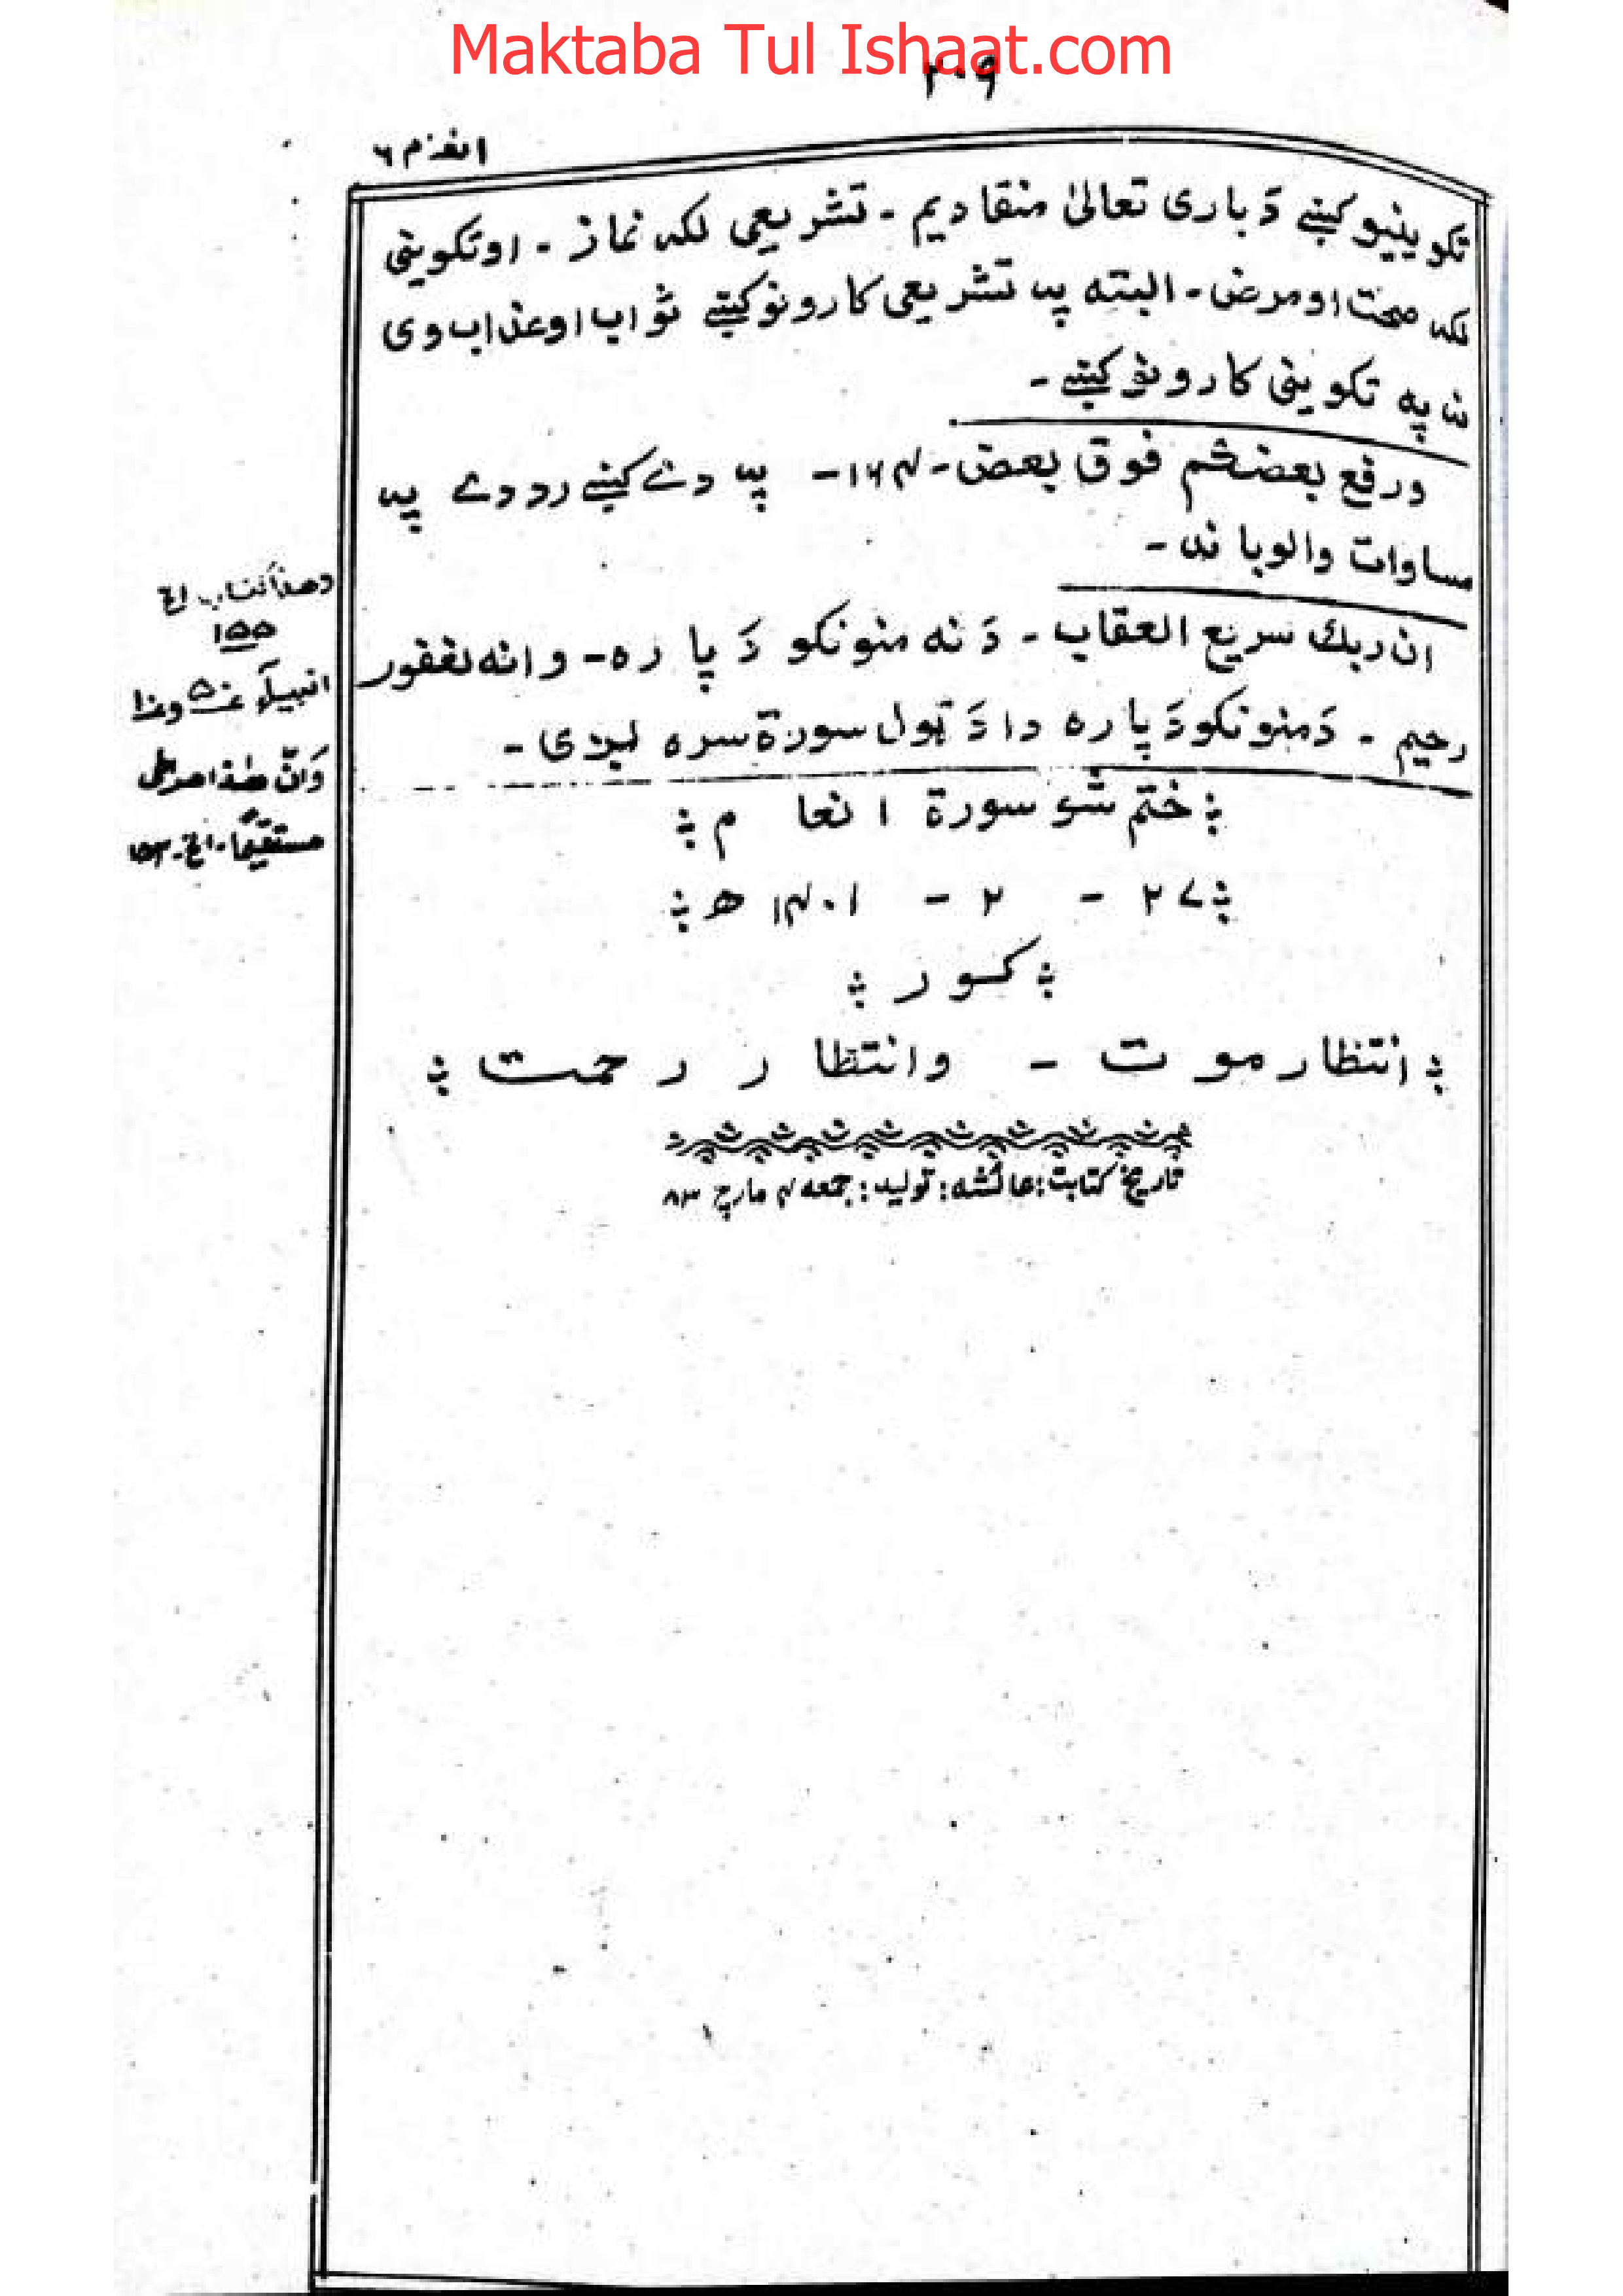 Maktaba Tul Ishaat.com
۲۰۹
تکوینیو کښے دَ باری تعالیٰ منقاد یم - تشریعی لکه نماز - او تکوینی
لکه صحت او مرض - البته په تشریعی کارونو کښے ثواب او عذاب وی
نه په تکوینی کارونو کښے -
ورفع بعضکم فوق بعض - ۱۶۴ - په دے کښے رد دے په
مساوات والو باندے -
ان ربك سریع العقاب - دَ نه منونکو دَ پاره - وانه لغفور
رحیم - دَ منونکو دَ پاره دا دَ ټول سورة سره لږی -
وهذا کتاب الخ
۱۵۵
انبیآء
وَاَنّ هٰذا صراطی
مستقیمًا - الخ - ۱۵۳
ختم شو سورة انعام
۲۷ - ۲ - ۱۴۰۱ ھ
کور
انتظار موت - وانتظار رحمت
تاریخ کتابت : عائشه : تولید : جمعه ۴ مارچ ۸۳